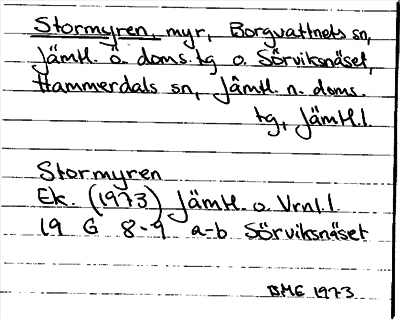 Stormyren, myr, Borgvattnets sn,
Jämtl. ö. doms. tg o. Sörviksnäset,
Hammerdals sn, Jämtl. n. doms.
tg, Jämtl.l.
Stormyren
Ek. (1973) Jämtl. o. Vrnl.l.
19 G 8-9 a-b Sörviksnäset
BME 1973